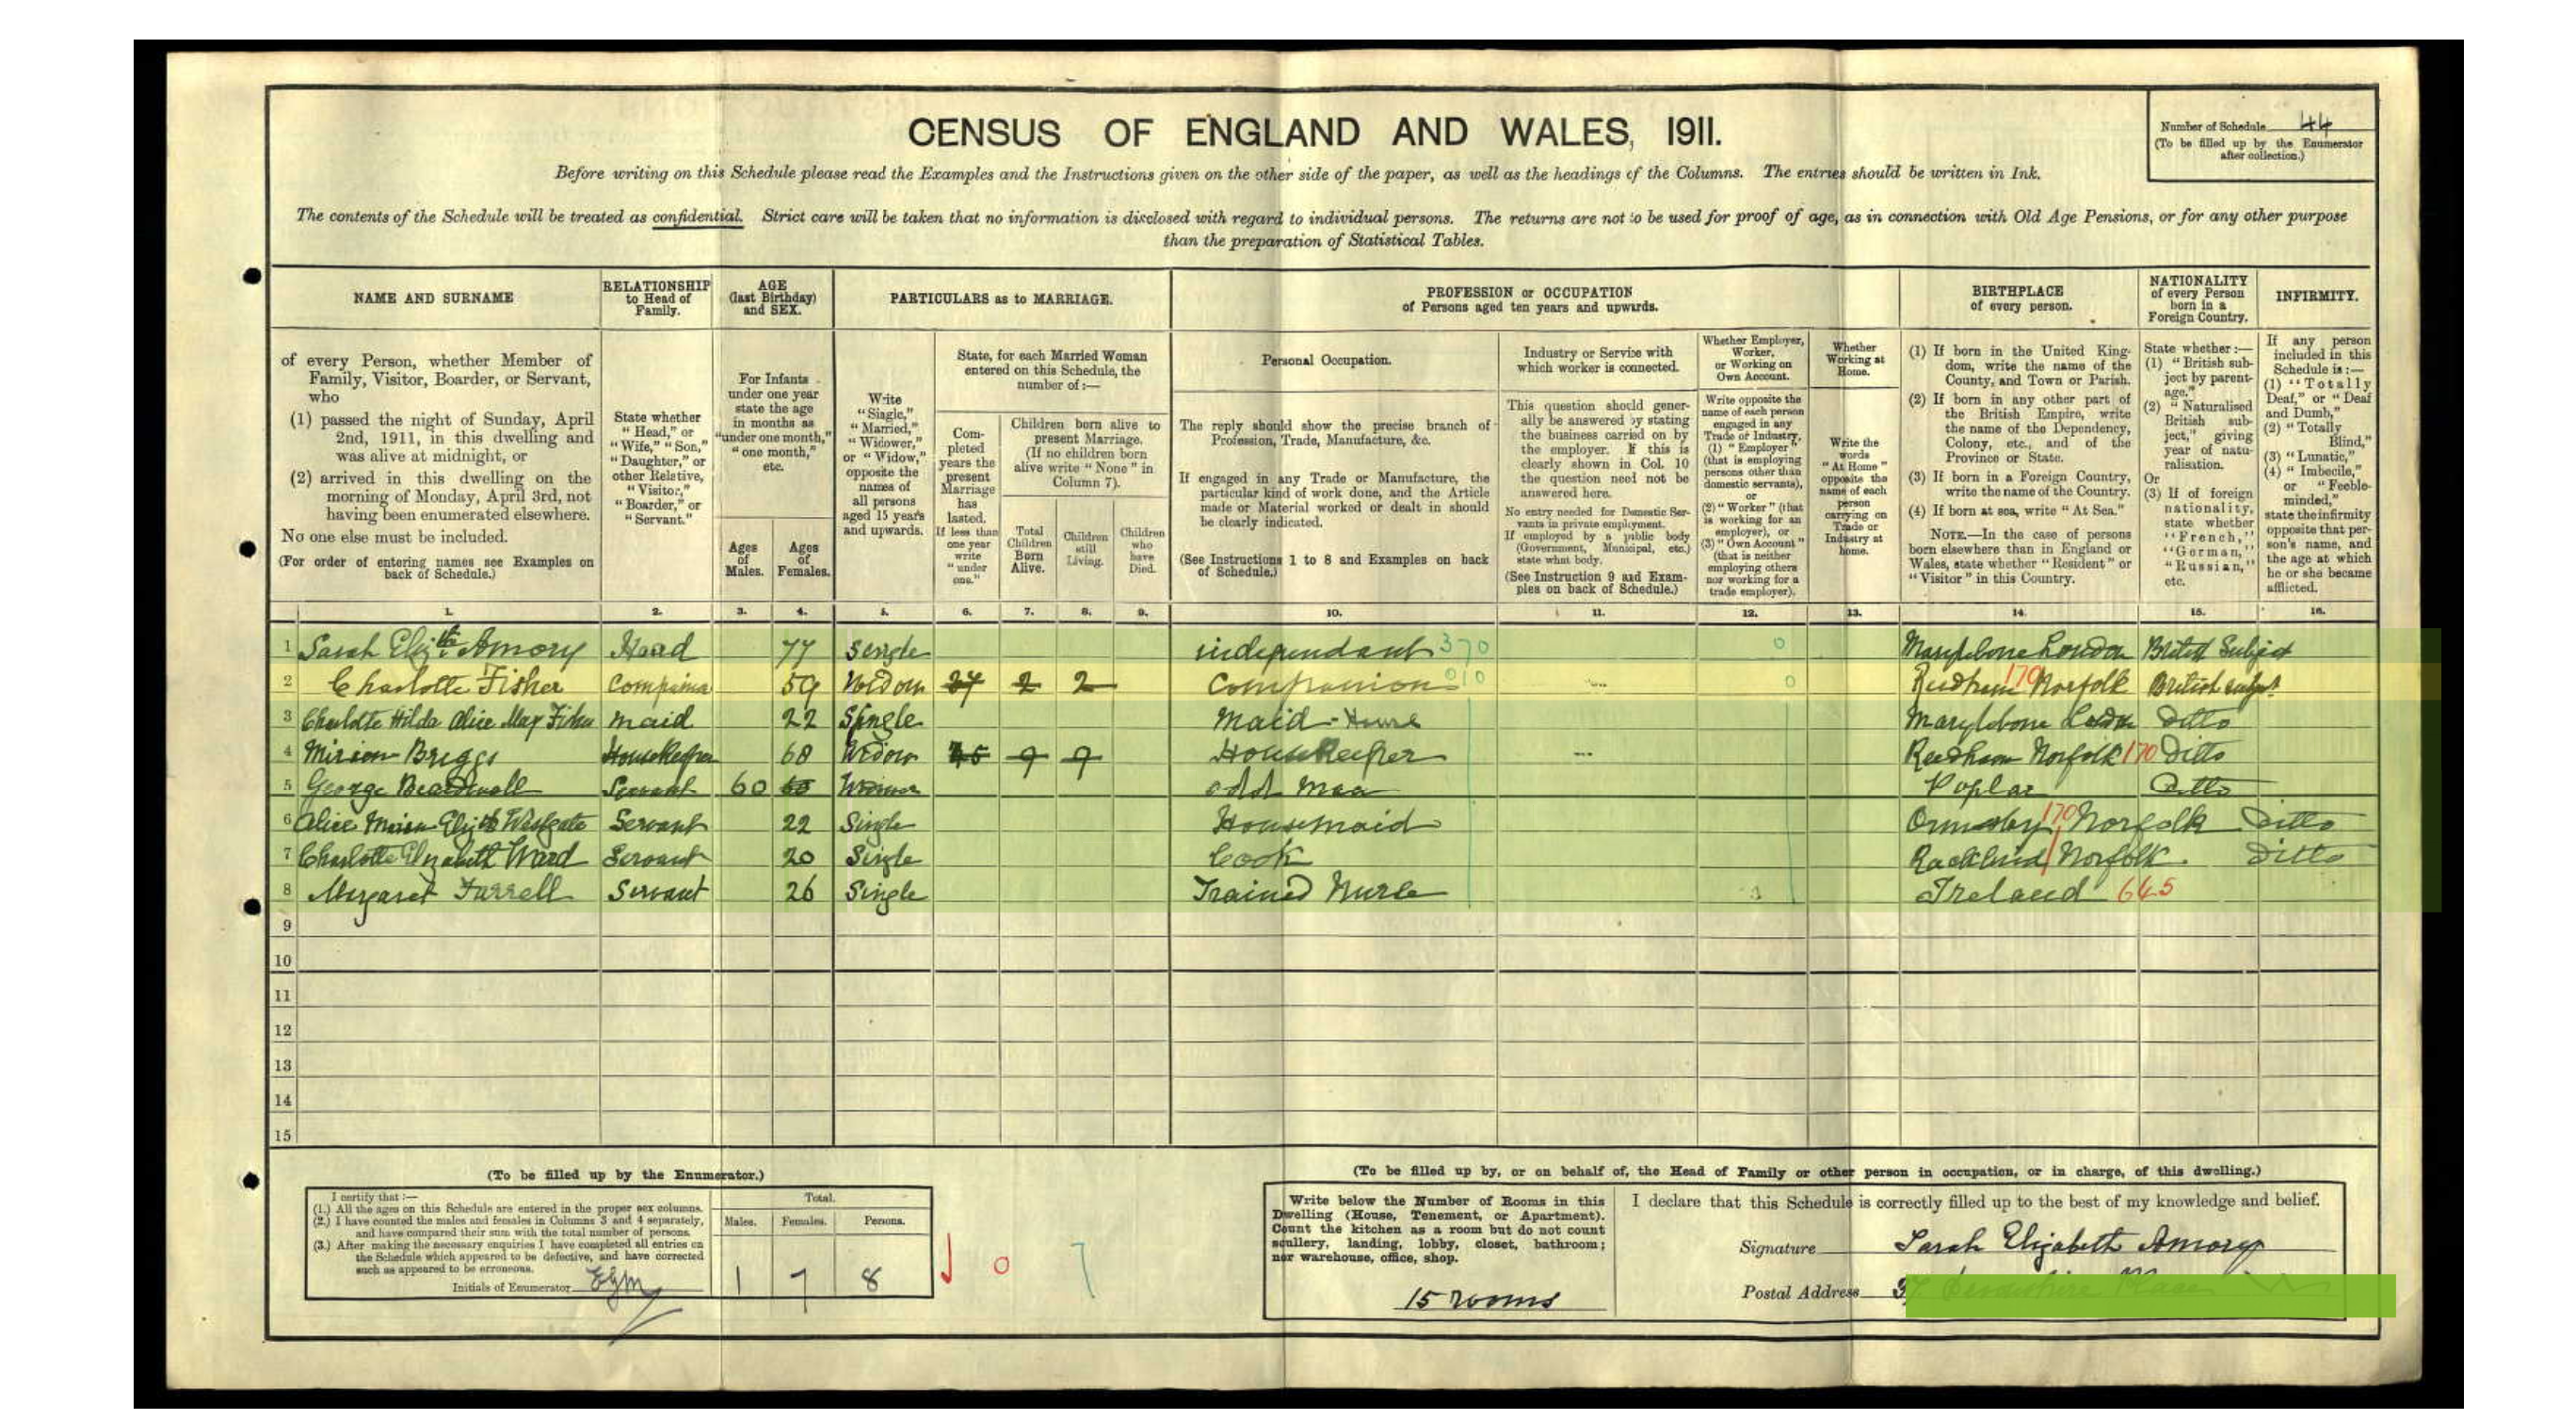 CENSUS OF ENGLAND AND WALES, 1911.
Number of Schedule 44
(To be filled up by the Enumerator
after collection.)
Before writing on this Schedule please read the Examples and the Instructions given on the other side of the paper, as well as the headings of the Columns. The entries should be written in Ink.
The contents of the Schedule will be treated as confidential. Strict care will be taken that no information is disclosed with regard to individual persons. The returns are not to be used for proof of age, as in connection with Old Age Pensions, or for any other purpose
than the preparation of Statistical Tables.
NAME AND SURNAME
of every Person, whether Member of
Family, Visitor, Boarder, or Servant,
who
(1) passed the night of Sunday, April
2nd, 1911, in this dwelling and
was alive at midnight, or
(2) arrived in this dwelling on the
morning of Monday, April 3rd, not
having been enumerated elsewhere.
No one else must be included.
(For order of entering names see Examples on
back of Schedule.)
RELATIONSHIP
to Head of
Family.
State whether
"Head," or
"Wife," "Son,"
"Daughter," or
other Relative,
"Visitor,"
"Boarder," or
"Servant."
AGE
(last Birthday)
and SEX.
For Infants
under one year
state the age
in months as
"under one month,"
"one month,"
etc.
Ages
of
Males.
Ages
of
Females.
PARTICULARS as to MARRIAGE.
Write
"Single,"
"Married,"
"Widower,"
or "Widow,"
opposite the
names of
all persons
aged 15 years
and upwards.
State, for each Married Woman
entered on this Schedule, the
number of:—
Com-
pleted
years the
present
Marriage
has
lasted.
If less than
one year
write
"under
one."
Children born alive to
present Marriage.
(If no children born
alive write "None" in
Column 7).
Total
Children
Born
Alive.
Children
still
Living.
Children
who
have
Died.
PROFESSION or OCCUPATION
of Persons aged ten years and upwards.
Personal Occupation.
The reply should show the precise branch of
Profession, Trade, Manufacture, &c.
If engaged in any Trade or Manufacture, the
particular kind of work done, and the Article
made or Material worked or dealt in should
be clearly indicated.
(See Instructions 1 to 8 and Examples on back
of Schedule.)
Industry or Service with
which worker is connected.
This question should gener-
ally be answered by stating
the business carried on by
the employer. If this is
clearly shown in Col. 10
the question need not be
answered here.
No entry needed for Domestic Ser-
vants in private employment.
If employed by a public body
(Government, Municipal, etc.)
state what body.
(See Instruction 9 and Exam-
ples on back of Schedule.)
Whether Employer,
Worker,
or Working on
Own Account.
Write opposite the
name of each person
engaged in any
Trade or Industry,
(1) "Employer"
(that is employing
persons other than
domestic servants),
or
(2) "Worker" (that
is working for an
employer), or
(3) "Own Account"
(that is neither
employing others
nor working for a
trade employer).
Whether
Working at
Home.
Write the
words
"At Home"
opposite the
name of each
person
carrying on
Trade or
Industry at
home.
BIRTHPLACE
of every person.
(1) If born in the United King-
dom, write the name of the
County, and Town or Parish.
(2) If born in any other part of
the British Empire, write
the name of the Dependency,
Colony, etc., and of the
Province or State.
(3) If born in a Foreign Country,
write the name of the Country.
(4) If born at sea, write "At Sea."
NOTE.—In the case of persons
born elsewhere than in England or
Wales, state whether "Resident" or
"Visitor" in this Country.
NATIONALITY
of every Person
born in a
Foreign Country.
State whether:—
(1) "British sub-
ject by parent-
age,"
(2) "Naturalised
British sub-
ject," giving
year of natu-
ralisation.
Or
(3) If of foreign
nationality,
state whether
"French,"
"German,"
"Russian,"
etc.
INFIRMITY.
If any person
included in this
Schedule is:—
(1) "Totally
Deaf," or "Deaf
and Dumb,"
(2) "Totally
Blind,"
(3) "Lunatic,"
(4) "Imbecile,"
or "Feeble-
minded,"
state the infirmity
opposite that per-
son's name, and
the age at which
he or she became
afflicted.
1. 2. 3. 4. 5. 6. 7. 8. 9. 10. 11. 12. 13. 14. 15. 16.
1 Sarah Elizth Amory Head 77 Single independant 370 0 Marylebone London British Subject
2 Charlotte Fisher 59 Widow 2 2 Companion 010 0 Reedham 170 Norfolk British subject
3 Charlotte Hilda Alice May Fisher maid 22 Single Maid - House Marylebone London Ditto
4 Miriam Briggs Housekeeper 68 Widow 9 9 Housekeeper Reedham Norfolk 170 Ditto
5 George Servant 60 odd man Poplar Ditto
6 Alice Elizth Westgate Servant 22 Single Housemaid Ormesby 170 Norfolk Ditto
7 Charlotte Elizabeth Ward Servant 20 Single Cook Norfolk. Ditto
8 Margaret Farrell Servant 26 Single Trained Nurse Ireland 645
9
10
11
12
13
14
15
(To be filled up by the Enumerator.)
I certify that:—
(1.) All the ages on this Schedule are entered in the proper sex columns.
(2.) I have counted the males and females in Columns 3 and 4 separately,
and have compared their sum with the total number of persons.
(3.) After making the necessary enquiries I have completed all entries on
the Schedule which appeared to be defective, and have corrected
such as appeared to be erroneous.
Initials of Enumerator
Total.
Males. Females. Persons.
1 7 8
0 7
(To be filled up by, or on behalf of, the Head of Family or other person in occupation, or in charge, of this dwelling.)
Write below the Number of Rooms in this
Dwelling (House, Tenement, or Apartment).
Count the kitchen as a room but do not count
scullery, landing, lobby, closet, bathroom;
nor warehouse, office, shop.
15 rooms
I declare that this Schedule is correctly filled up to the best of my knowledge and belief.
Signature Sarah Elizabeth Amory
Postal Address